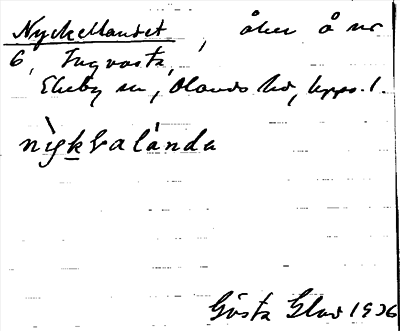 Nyckellandet, åker å nr
6, Ingvasta,
Ekeby sn, Olands hd, Upps. l.
nykkalánda
Gösta Glad 1936